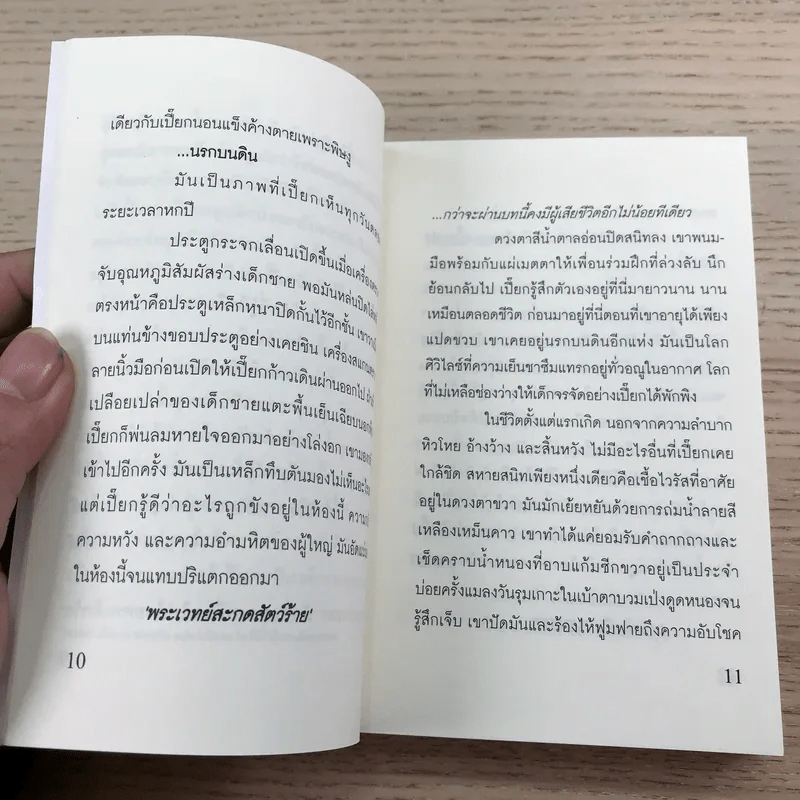 เดียวกับเปี๊ยกนอนแข็งค้างตายเพราะพิษงู
...นรกบนดิน
มันเป็นภาพที่เปี๊ยกเห็นทุกวันตลอด
ระยะเวลาหกปี
ประตูกระจกเลื่อนเปิดขึ้นเมื่อเครื่อง
จับอุณหภูมิสัมผัสร่างเด็กชาย พอมันหล่นปิดไล่หลัง
ตรงหน้าคือประตูเหล็กหนาปิดกั้นไว้อีกชั้น เขาวาง
บนแท่นข้างขอบประตูอย่างเคยชิน เครื่องสแกน
ลายนิ้วมือก่อนเปิดให้เปี๊ยกก้าวเดินผ่านออกไป
เปลือยเปล่าของเด็กชายแตะพื้นเย็นเฉียบนอก
เปี๊ยกก็พ่นลมหายใจออกมาอย่างโล่งอก เขามอง
เข้าไปอีกครั้ง มันเป็นเหล็กทึบตันมองไม่เห็นอะไร
แต่เปี๊ยกรู้ดีว่าอะไรถูกขังอยู่ในห้องนี้
ความหวัง และความอำมหิตของผู้ใหญ่ มันอัดแน่น
ในห้องนี้จนแทบปริแตกออกมา
'พระเวทย์สะกดสัตว์ร้าย'
10
...กว่าจะผ่านบทนี้คงมีผู้เสียชีวิตอีกไม่น้อยทีเดียว
ดวงตาสีน้ำตาลอ่อนปิดสนิทลง เขาพนม-
มือพร้อมกับแผ่เมตตาให้เพื่อนร่วมฝึกที่ล่วงลับ นึก
ย้อนกลับไป เปี๊ยกรู้สึกตัวเองอยู่ที่นี่มายาวนาน นาน
เหมือนตลอดชีวิต ก่อนมาอยู่ที่นี่ตอนที่เขาอายุได้เพียง
แปดขวบ เขาเคยอยู่นรกบนดินอีกแห่ง มันเป็นโลก
ศิวิไลซ์ที่ความเย็นชาซึมแทรกอยู่ทั่วอณูในอากาศ โลก
ที่ไม่เหลือช่องว่างให้เด็กจรจัดอย่างเปี๊ยกได้พักพิง
ในชีวิตตั้งแต่แรกเกิด นอกจากความลำบาก
หิวโหย อ้างว้าง และสิ้นหวัง ไม่มีอะไรอื่นที่เปี๊ยกเคย
ใกล้ชิด สหายสนิทเพียงหนึ่งเดียวคือเชื้อไวรัสที่อาศัย
อยู่ในดวงตาขวา มันมักเย้ยหยันด้วยการถ่มน้ำลายสี
เหลืองเหม็นคาว เขาทำได้แค่ยอมรับคำถากถางและ
เช็ดคราบน้ำหนองที่อาบแก้มซีกขวาอยู่เป็นประจำ
บ่อยครั้งแมลงวันรุมเกาะในเบ้าตาบวมเป่งดูดหนองจน
รู้สึกเจ็บ เขาปัดมันและร้องไห้ฟูมฟายถึงความอับโชค
11